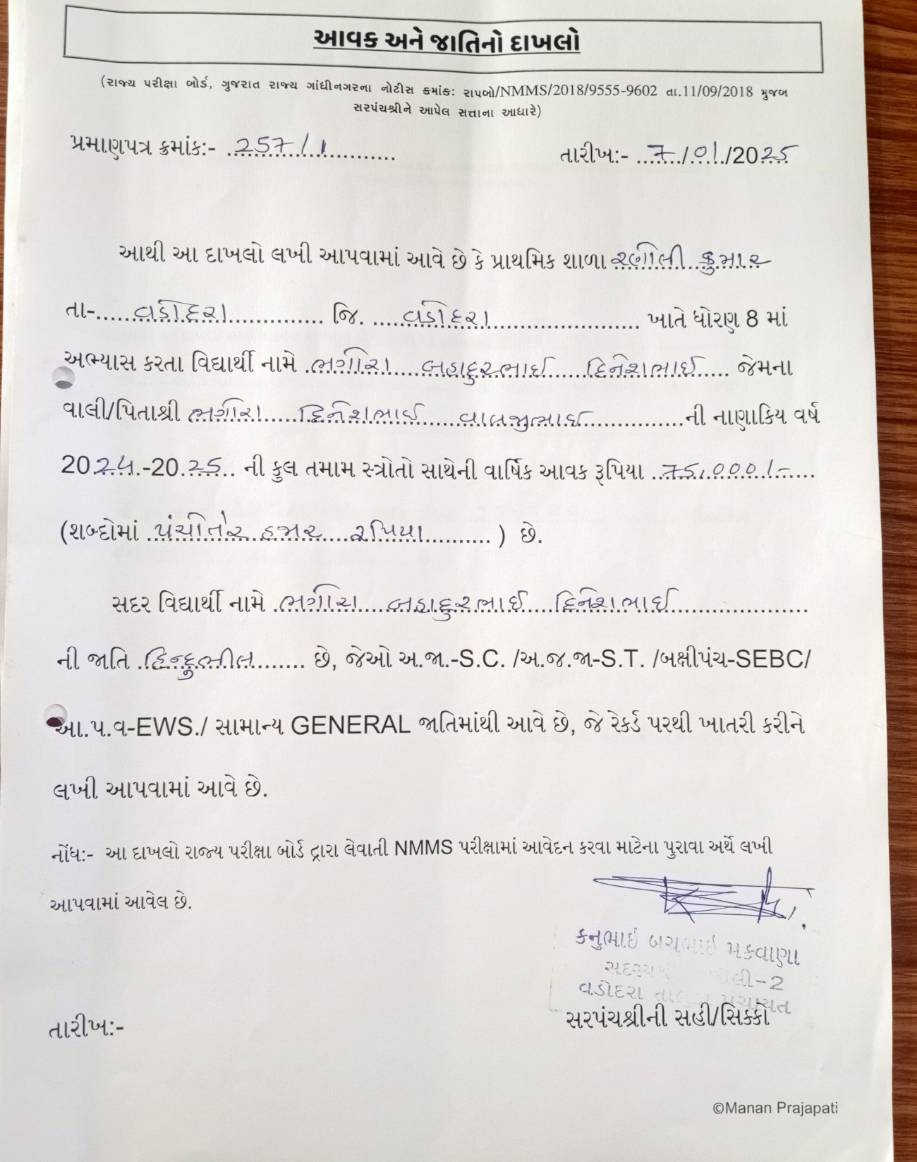 આવક અને જાતિનો દાખલો
(રાજ્ય પરીક્ષા બોર્ડ, ગુજરાત રાજ્ય ગાંધીનગરના નોટીસ ક્રમાંક: રાપબો/NMMS/2018/9555-9602 તા.11/09/2018 મુજબ
સરપંચશ્રીને આપેલ સત્તાના આધારે)
પ્રમાણપત્ર ક્રમાંક:- 257/1
તારીખ:- 7/01/2025
આથી આ દાખલો લખી આપવામાં આવે છે કે પ્રાથમિક શાળા રણોલી કુમાર
તા-વડોદરા જિ. વડોદરા ખાતે ધોરણ 8 માં
અભ્યાસ કરતા વિદ્યાર્થી નામે ભગોરા બહાદુરભાઈ દિનેશભાઈ જેમના
વાલી/પિતાશ્રી ભગોરા દિનેશભાઈ વાલજીભાઈ ની નાણાકિય વર્ષ
2024-2025 ની કુલ તમામ સ્ત્રોતો સાથેની વાર્ષિક આવક રૂપિયા 75,000/-
(શબ્દોમાં પંચોતેર હજાર રૂપિયા ) છે.
સદર વિદ્યાર્થી નામે ભગોરા બહાદુરભાઈ દિનેશભાઈ
ની જાતિ હિન્દુભીલ છે, જેઓ અ.જા.-S.C. /અ.જ.જા-S.T. /બક્ષીપંચ-SEBC/
આ.પ.વ-EWS./ સામાન્ય GENERAL જાતિમાંથી આવે છે, જે રેકર્ડ પરથી ખાતરી કરીને
લખી આપવામાં આવે છે.
નોંધ:- આ દાખલો રાજ્ય પરીક્ષા બોર્ડ દ્વારા લેવાતી NMMS પરીક્ષામાં આવેદન કરવા માટેના પુરાવા અર્થે લખી
આપવામાં આવેલ છે.
કનુભાઈ મકવાણા
-2
વડોદરા પંચાયત
સરપંચશ્રીની સહી/સિક્કો
તારીખ:-
©Manan Prajapati